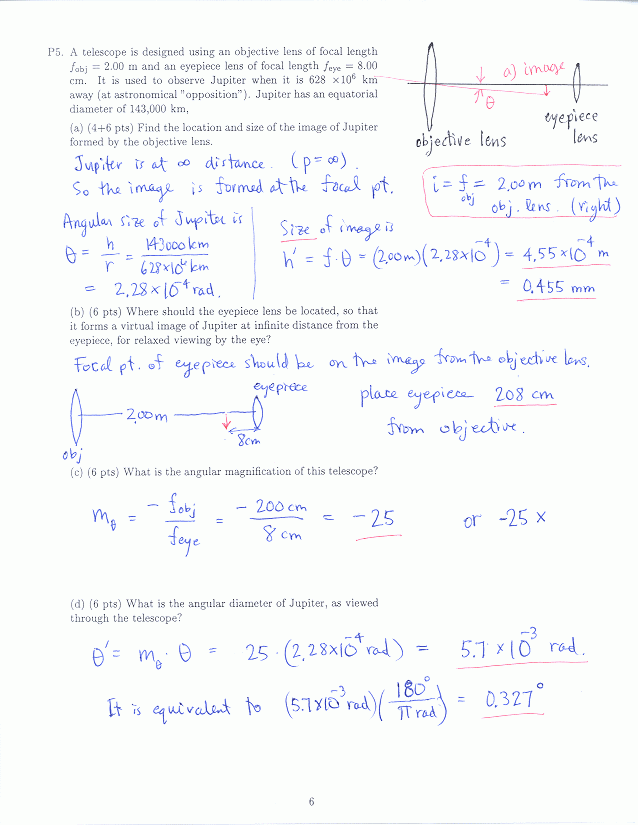 P5. A telescope is designed using an objective lens of focal length
f_obj = 2.00 m and an eyepiece lens of focal length f_eye = 8.00
cm. It is used to observe Jupiter when it is 628 ×10⁶ km
away (at astronomical "opposition"). Jupiter has an equatorial
diameter of 143,000 km,
a) image
θ
objective lens
eyepiece
lens
(a) (4+6 pts) Find the location and size of the image of Jupiter
formed by the objective lens.
Jupiter is at ∞ distance. (p = ∞).
So the image is formed at the focal pt.
i = f_obj = 2.00m from the
obj. lens. (right)
Angular size of Jupiter is
θ = h/r = 143000km / 628×10⁶ km
= 2.28×10⁻⁴ rad.
Size of image is
h' = f·θ = (2.00m)(2.28×10⁻⁴) = 4.55×10⁻⁴ m
= 0.455 mm
(b) (6 pts) Where should the eyepiece lens be located, so that
it forms a virtual image of Jupiter at infinite distance from the
eyepiece, for relaxed viewing by the eye?
Focal pt. of eyepiece should be on the image from the objective lens.
eyepiece
2.00m
8cm
obj
place eyepiece 208 cm
from objective.
(c) (6 pts) What is the angular magnification of this telescope?
m_θ = -f_obj / f_eye = -200 cm / 8 cm = -25 or -25 ×
(d) (6 pts) What is the angular diameter of Jupiter, as viewed
through the telescope?
θ' = m_θ · θ = 25 · (2.28×10⁻⁴ rad) = 5.7 × 10⁻³ rad.
It is equivalent to (5.7×10⁻³ rad)(180° / π rad) = 0.327°
6